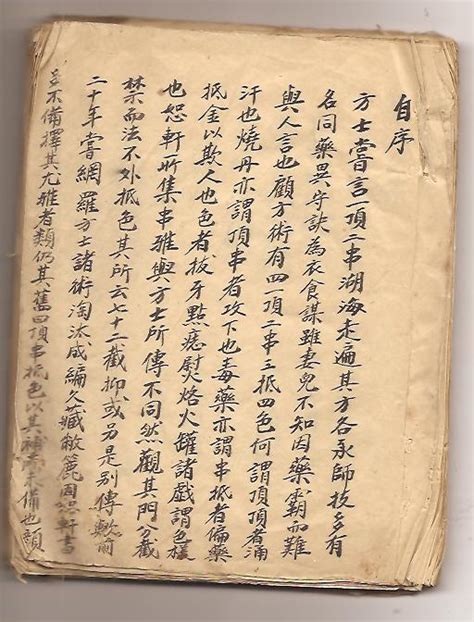 自序
方士嘗言一頂二串湖海走遍其方各承師技多有
名同藥異守訣為衣食謀雖妻兒不知因藥霸而難
與人言也顧方術有四一頂二串三抵四色何謂頂頂者涌
汗也燒丹亦謂頂串者攻下也毒藥亦謂串抵者偏藥
抵金以欺人也色者拔牙點痣熨火烙火罐諸戲謂色樣
也恕軒所集串雅與方士所傳不同然觀其門分截
禁而法不外抵色其所云七十二截抑或另是別傳歟前
二十年嘗網羅方士諸術淘汰成編久藏敝簏因恕軒書
不備擇其尤雅者類仍其舊四頂串抵色以其補未備也